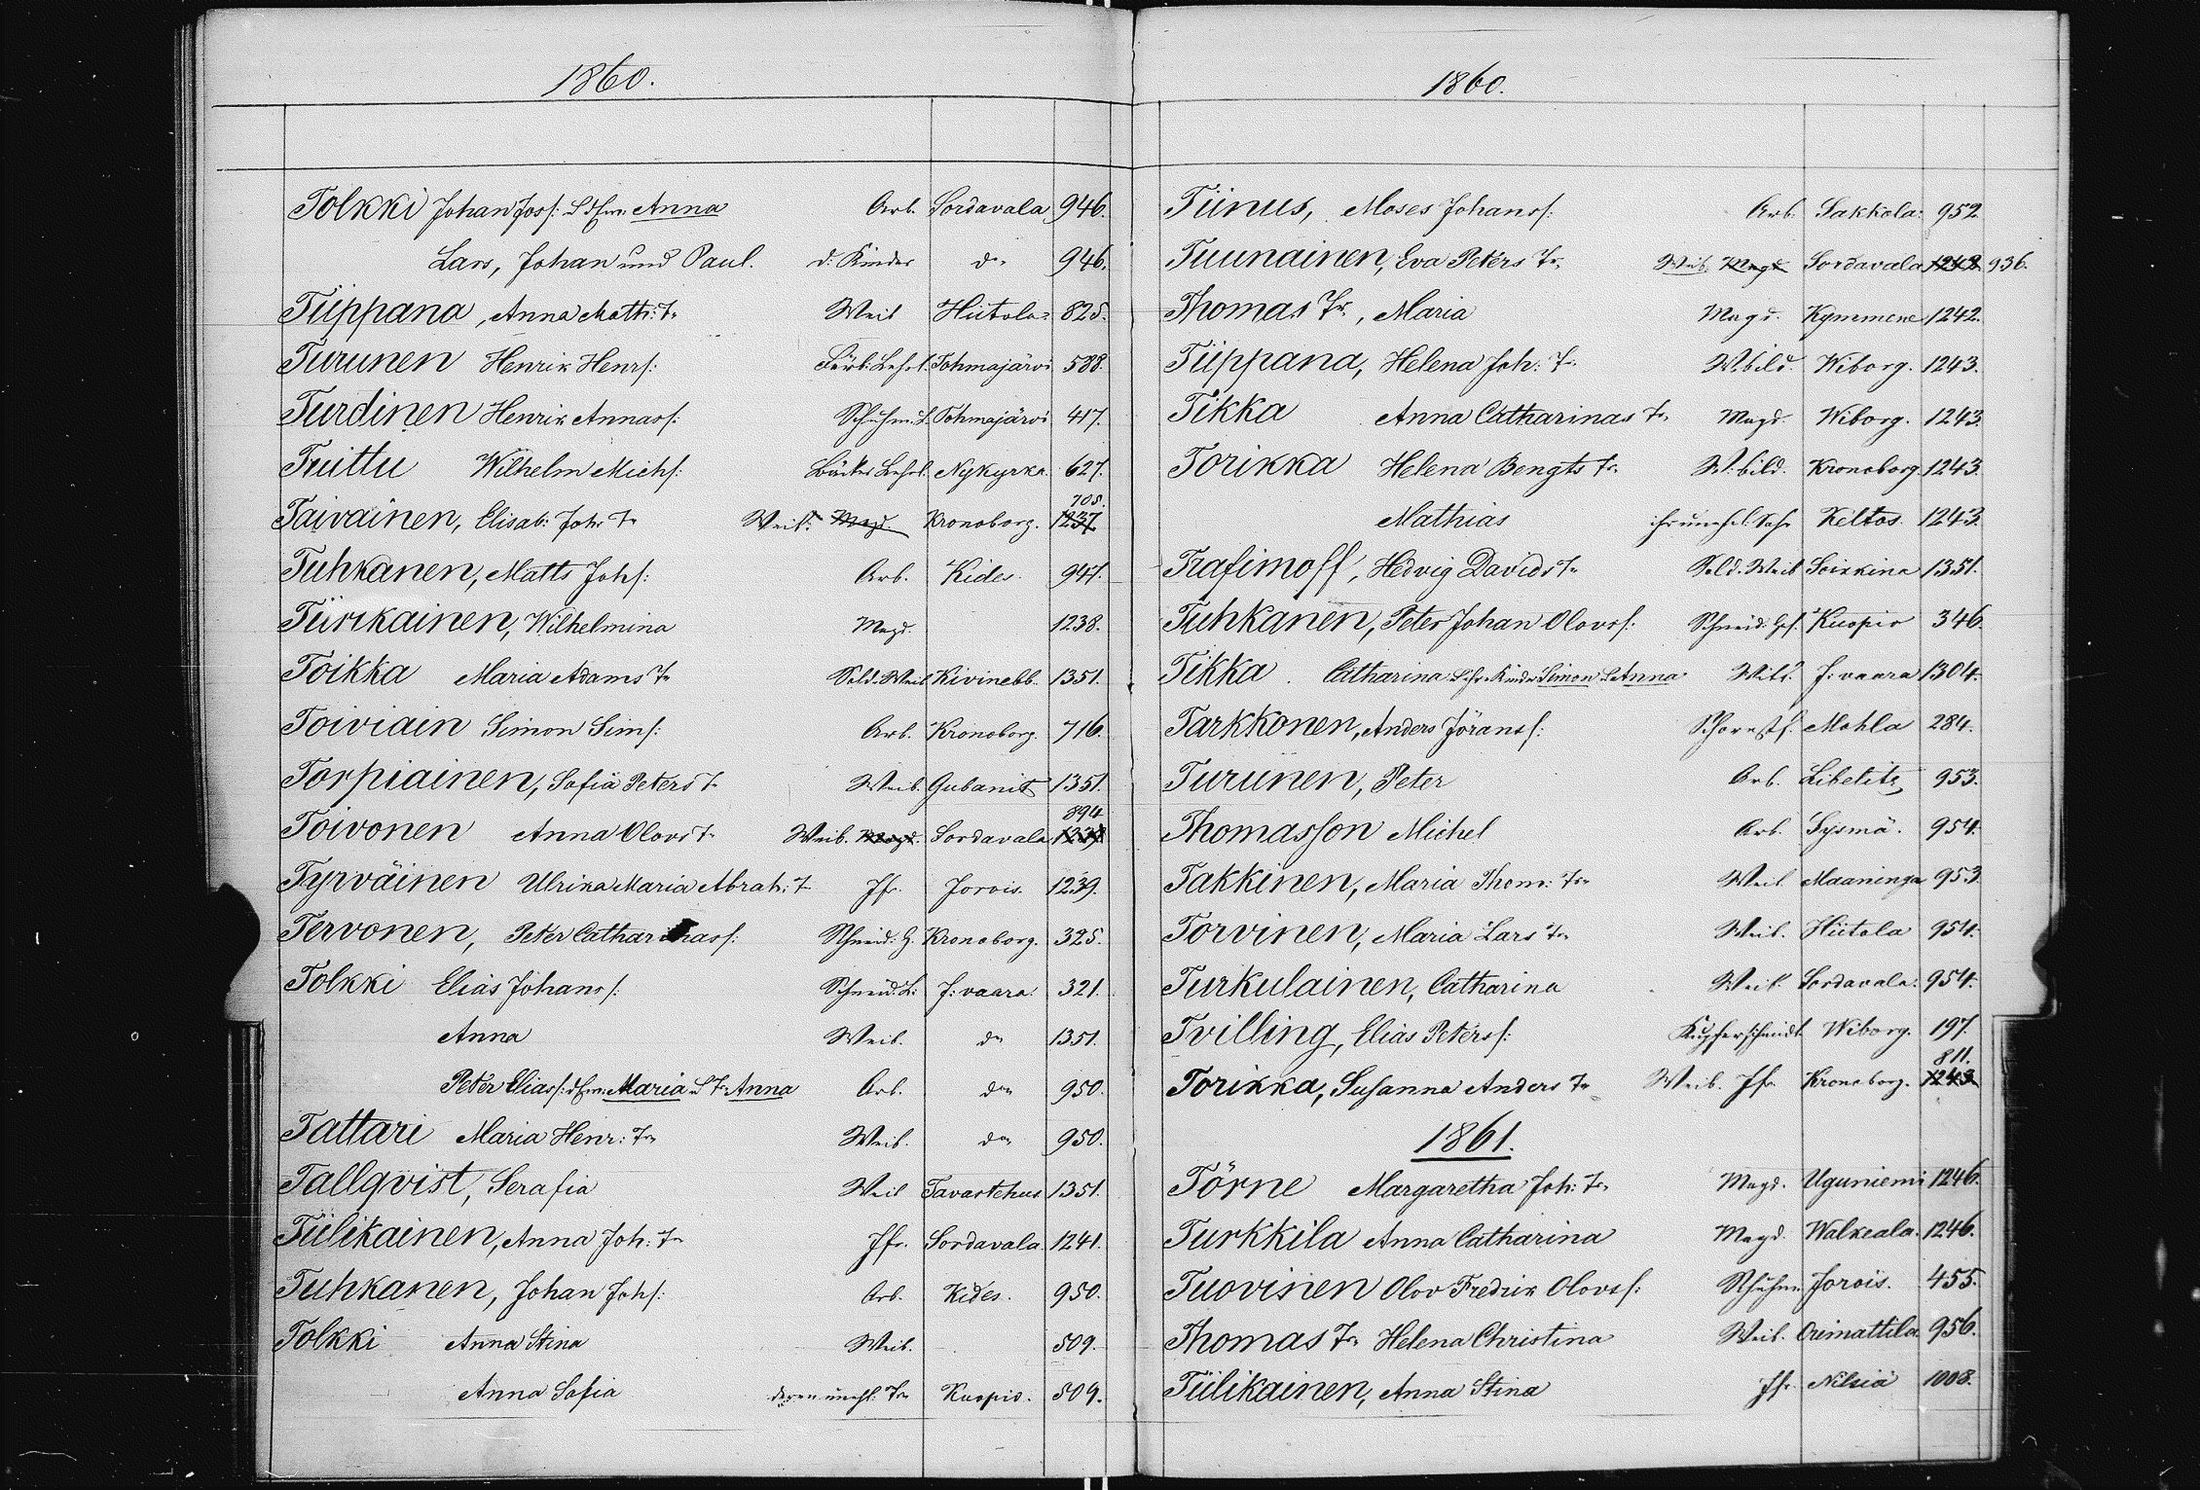 1860.
Tolkki Johan Johs: & d Frau Anna Arb. Sordavala 946.
Lars, Johan und Paul. d. Kinder do 946.
Tiippana, Anna Matts: Tr Weib Hiitola 825.
Turunen Henrik Henrs: Färb: Lehrl. Tohmajärvi 588.
Turdinen Henrik Annas: Schuhm: L. Tohmajärvi 417.
Tuittu Wilhelm Michs: Bäcker Lehrl. Nykyrka. 627.
Taivainen, Elisab: Joh: Tr Weib. Magd. Kronoborg. 1237. 705.
Tuhkanen, Matts Johs: Arb. Kides 947.
Tiirikainen, Wilhelmina Magd. 1238.
Toikka Maria Adams Tr Sold. Weib Kivinebb. 1351.
Toiviain Simon Sims: Arb. Kronoborg. 716.
Torpiainen, Sofia Peters Tr Weib. Gubanitz 1351.
Toivonen Anna Olovs Tr Weib. Magd. Sordavala 1238 894
Tyrväinen Ulrika Maria Abrah: Tr Jfr. Jorois. 1239.
Tervonen, Peter Catharinas: Schneid: G. Kronoborg. 325.
Tolkki Elias Johans: Schneid: L. J:vaara. 321.
Anna Weib. do 1351.
Peter Elias: d Frau Maria & Tr Anna Arb. do 950.
Tattari Maria Henr: Tr Weib. do 950.
Tallqvist, Serafia Weib Tavastehus 1351.
Tiilikainen, Anna Joh: Tr Jfr. Sordavala 1241.
Tuhkanen, Johan Johs: Arb. Kides. 950.
Tolkki Anna Stina Weib. 509.
Anna Sofia deren unehl: Tr Kuopio. 509.
1860.
Tiinus, Moses Johans: Arb. Sakkola: 952.
Tuunainen, Eva Peters Tr. Weib. Magd Sordavala 1242. 936.
Thomas Tr, Maria Magd. Kymmene 1242.
Tiippana, Helena Joh: Tr. W.bild. Wiborg. 1243.
Tikka Anna Catharinas Tr Magd. Wiborg. 1243.
Torikka Helena Bengts Tr. W.bild. Kronoborg. 1243.
Mathias ihr unehel. Sohn Keltos. 1243.
Trafimoff, Hedvig Davids Tr Sold. Weib Serzkina 1351.
Tuhkanen, Peter Johan Olovs: Schneid: Ges. Kuopio 346.
Tikka Catharina & ihr Kinder Simon & Anna J:vaara 1304.
Tarkkonen, Anders Jörans: Schornstf. Mohla 284.
Turunen, Peter Arb. Libelitz 953.
Thomasson Michel Arb. Sysmä. 954.
Takkinen, Maria Thom: Tr Weib Maaninga 953.
Torvinen, Maria Lars Tr Weib. Hiitola 954.
Turkulainen, Catharina Weib Sordavala: 954.
Tvilling, Elias Peters: Kupferschmidt Wiborg. 197.
Torikka, Susanna Anders Tr Weib. Jfr Kronoborg. 1243 811.
1861.
Törne Margaretha Joh: Tr. Magd. Uguniemi 1246.
Turkkila Anna Catharina Magd. Walkeala. 1246.
Tuovinen Olov Fredrik Olovs: Schuhm. Jorois. 455.
Thomas Tr Helena Christina Weib. Orimattila. 956.
Tiilikainen, Anna Stina Jfr. Nilsiä 1008.